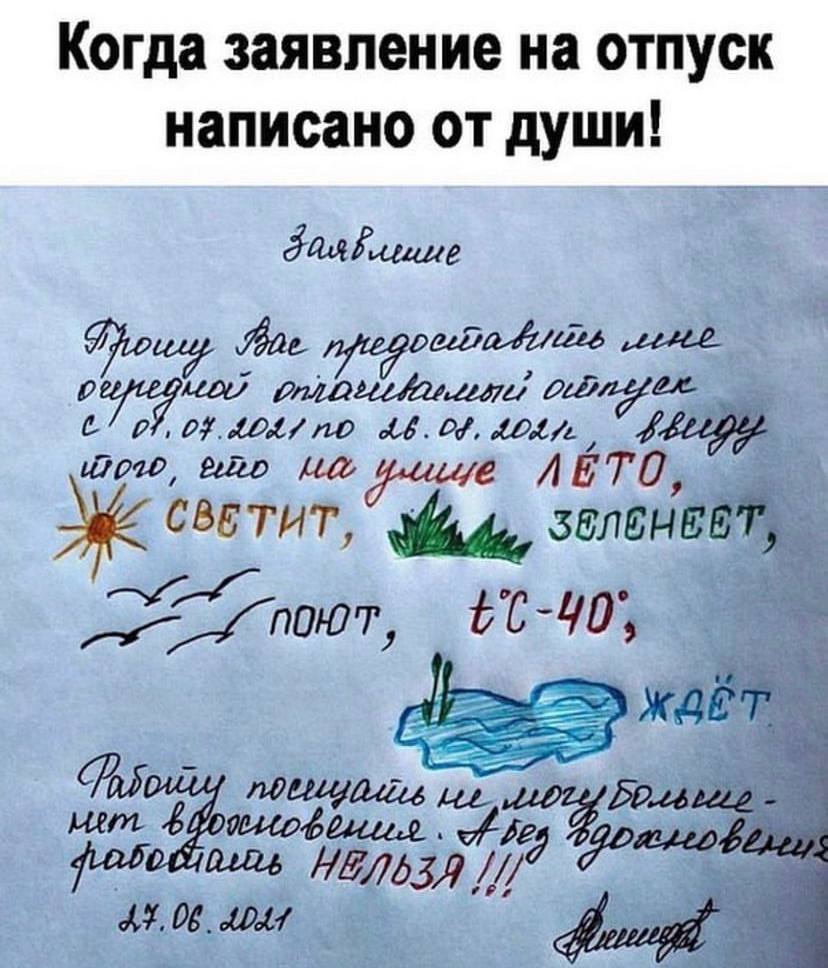 Когда заявление на отпуск
написано от души!
Заявление
Прошу Вас предоставить мне
очередной оплачиваемый отпуск
с 01.07.2021 по 26.08.2021г, ввиду
того, что на улице ЛЕТО,
СВЕТИТ, ЗЕЛЕНЕЕТ,
ПОЮТ, t°C-40°,
ЖДЁТ
Работу посещать не могу больше -
нет вдохновения. А без вдохновения
работать НЕЛЬЗЯ!!!
27.06.2021